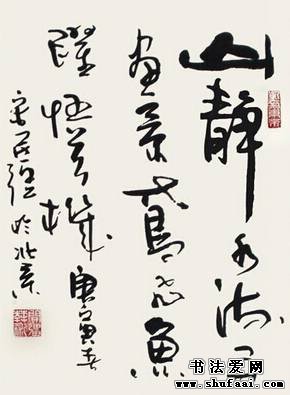 山静水流开
画景鸢飞鱼
跃悟天机 庚寅春
于北京
书法爱网
www.shufaai.com